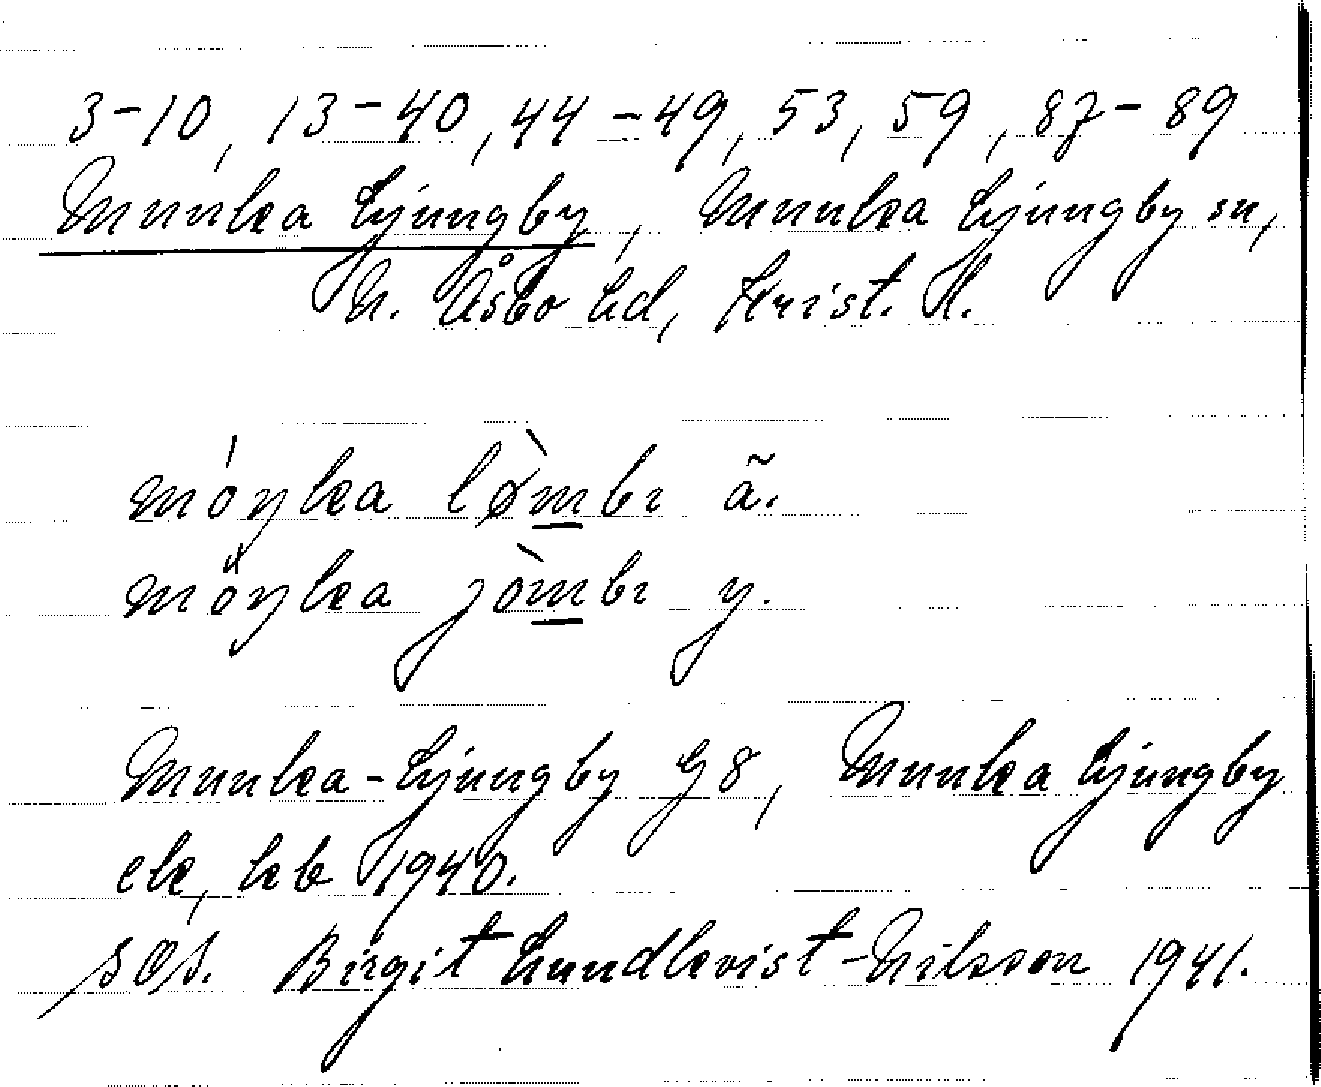 3-10, 13-40, 44-49, 53, 59, 87-89
Munka Ljungby, Munka Ljungby sn,
N. Åsbo hd, Krist. l.
móŋka lø̀mbı ã.
mo᷄ŋka jòmbı y.
Munka-Ljungby G8, Munka Ljungby
ek, kb 1940.
SOS. Birgit Lundkvist-Nilsson 1941.